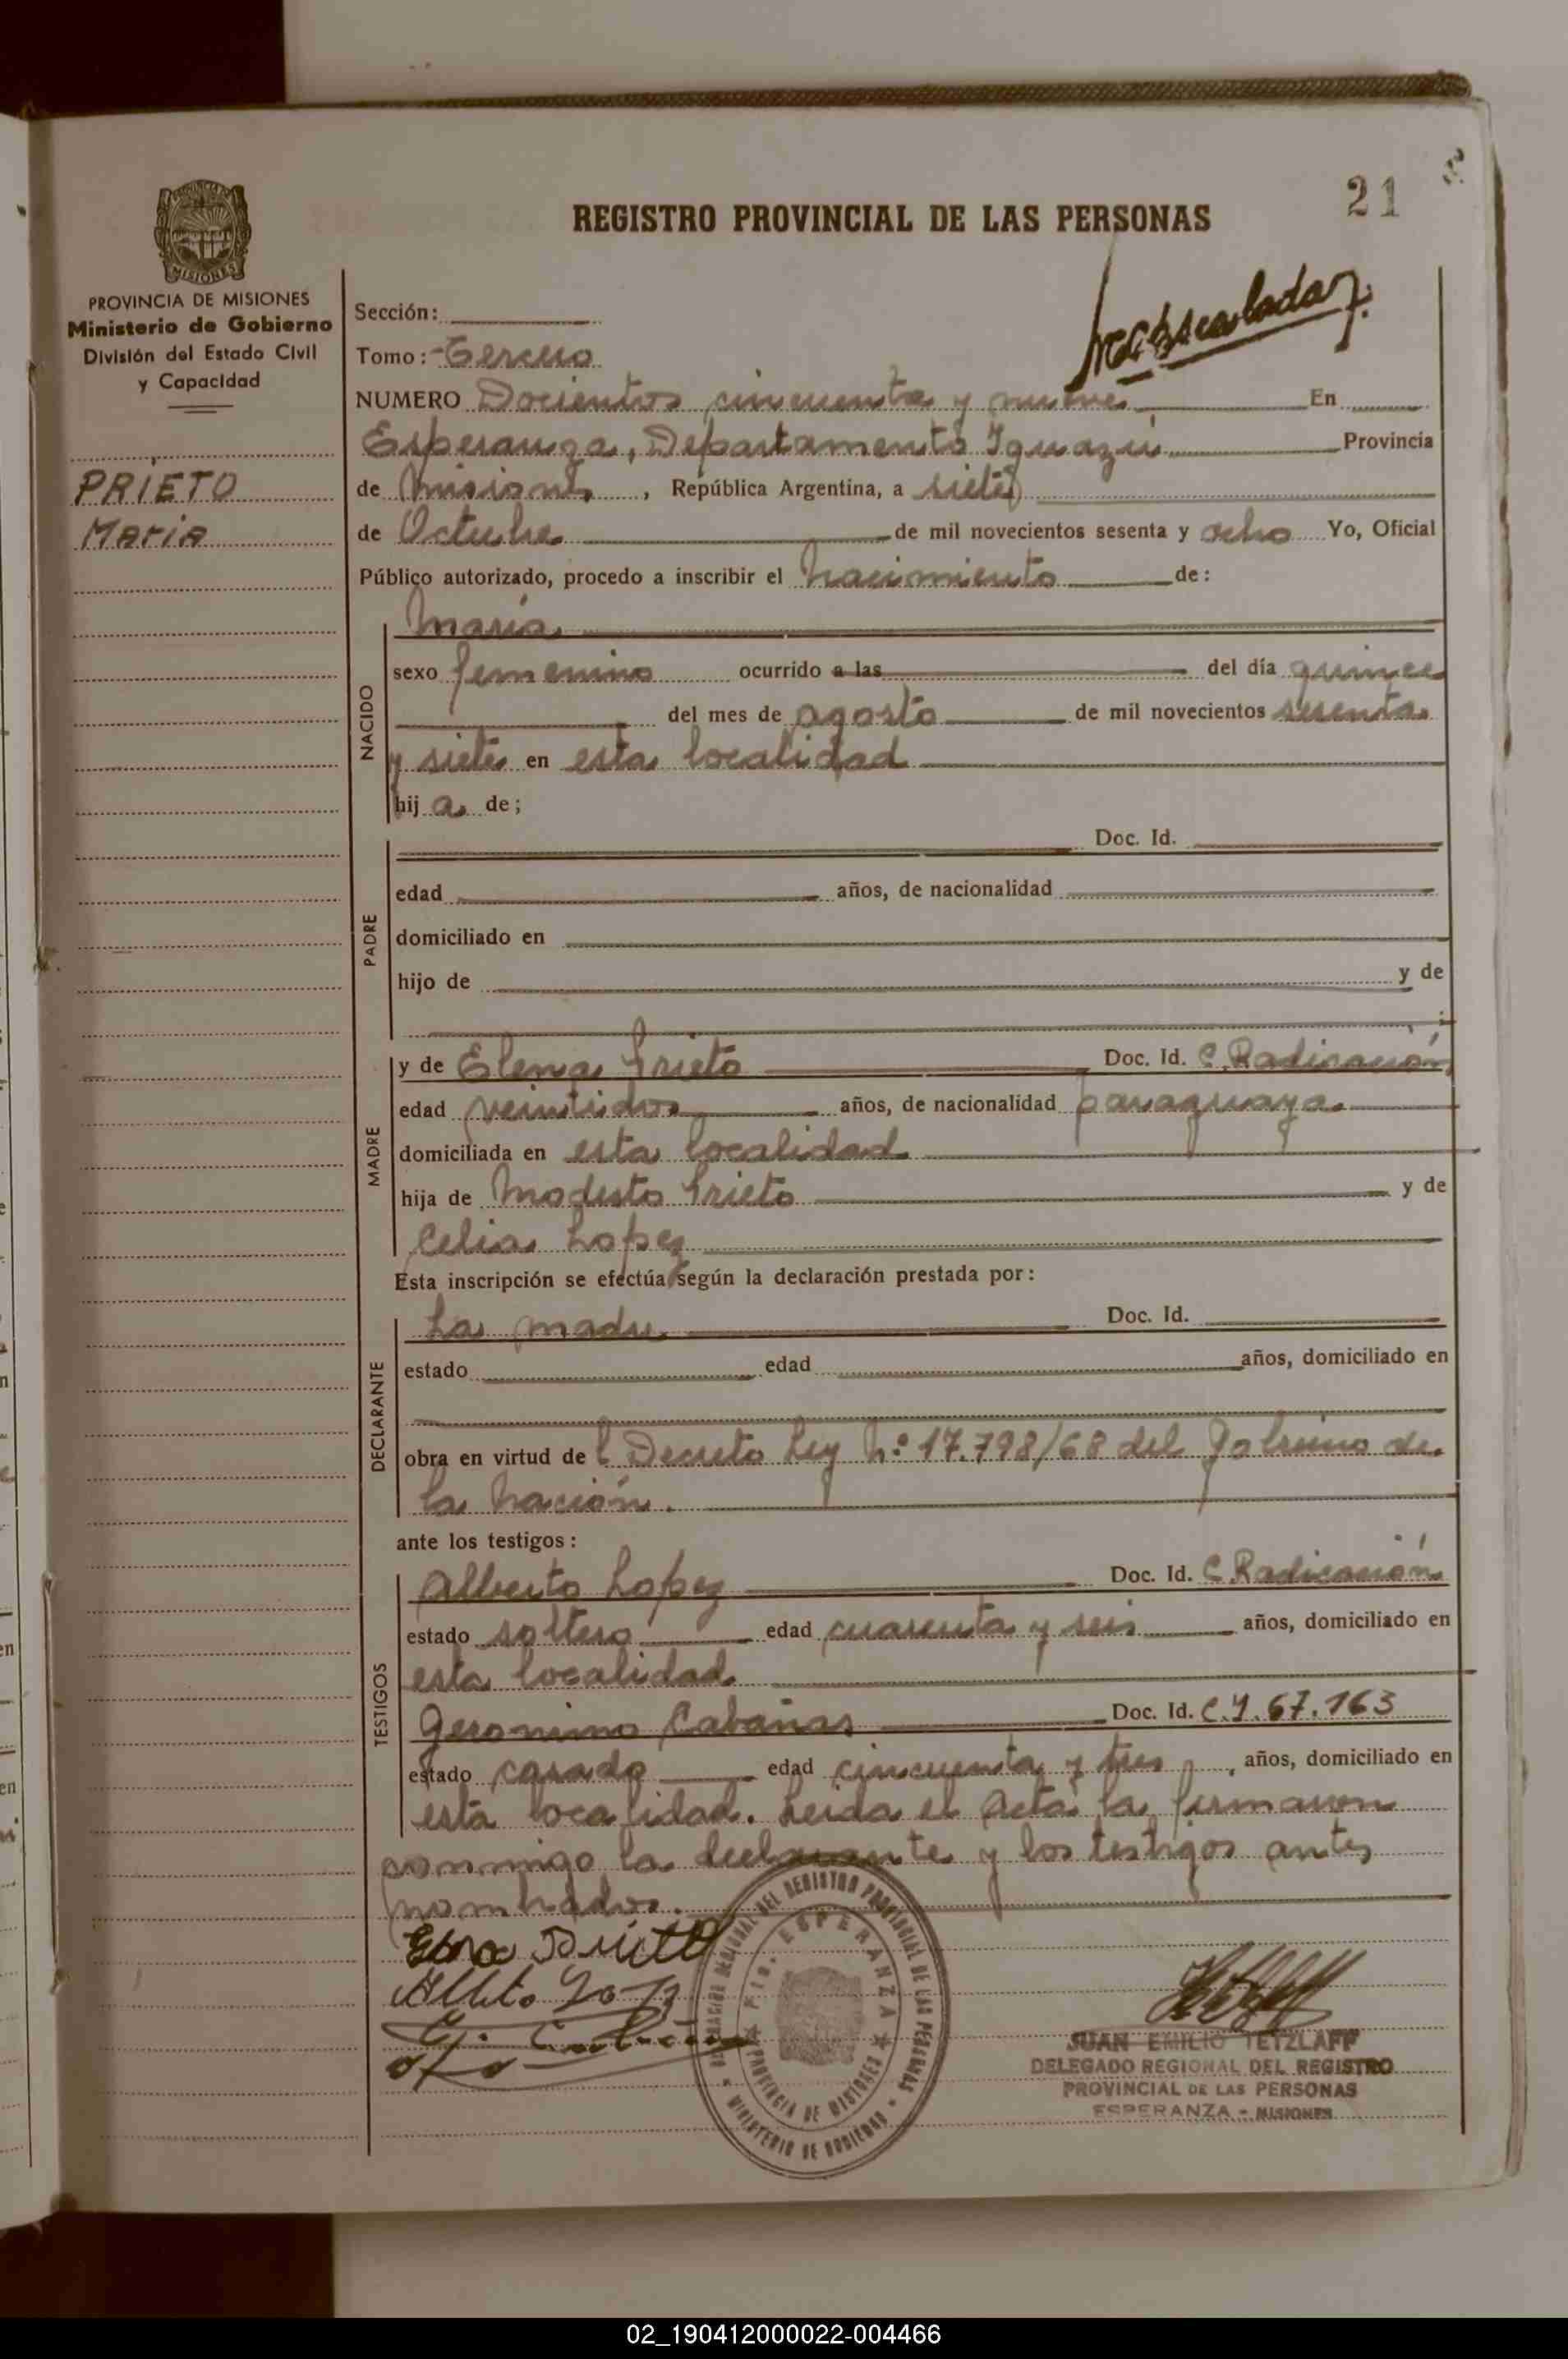 21
REGISTRO PROVINCIAL DE LAS PERSONAS
MISIONES
PROVINCIA DE MISIONES
Ministerio de Gobierno
División del Estado Civil
y Capacidad
PRIETO
Maria
Sección:
Tomo: Tercero
NUMERO Docientos cincuenta y nueve En
Esperanza, Departamento Iguazú Provincia
de Misiones, República Argentina, a siete
de Octubre de mil novecientos sesenta y ocho Yo, Oficial
Público autorizado, procedo a inscribir el nacimiento de:
NACIDO
María
sexo femenino ocurrido a las del día quince
del mes de agosto de mil novecientos sesenta
y siete en esta localidad
hij a de;
PADRE
Doc. Id.
edad años, de nacionalidad
domiciliado en
hijo de y de
MADRE
y de Elena Prieto Doc. Id. C. Radicación
edad veintidos años, de nacionalidad paraguaya
domiciliada en esta localidad
hija de Modesto Prieto y de
Celia Lopez
Esta inscripción se efectúa según la declaración prestada por:
DECLARANTE
La madre Doc. Id.
estado edad años, domiciliado en
obra en virtud de l Decreto Ley Nº 17.798/68 del Gobierno de
la Nación.
ante los testigos:
TESTIGOS
Alberto Lopez Doc. Id. C. Radicación
estado soltero edad cuarenta y seis años, domiciliado en
esta localidad
Geronimo Cabañas Doc. Id. C.I. 67.163
estado casado edad cincuenta y tres, años, domiciliado en
esta localidad. Leida el Acta la firmaron
conmigo la declarante y los testigos antes
nombrados.
DEL REGISTRO PROVINCIAL DE LAS PERSONAS
ESPERANZA
PROVINCIA DE MISIONES
MINISTERIO DE GOBIERNO
JUAN EMILIO TETZLAFF
DELEGADO REGIONAL DEL REGISTRO
PROVINCIAL DE LAS PERSONAS
ESPERANZA - MISIONES
02_190412000022-004466